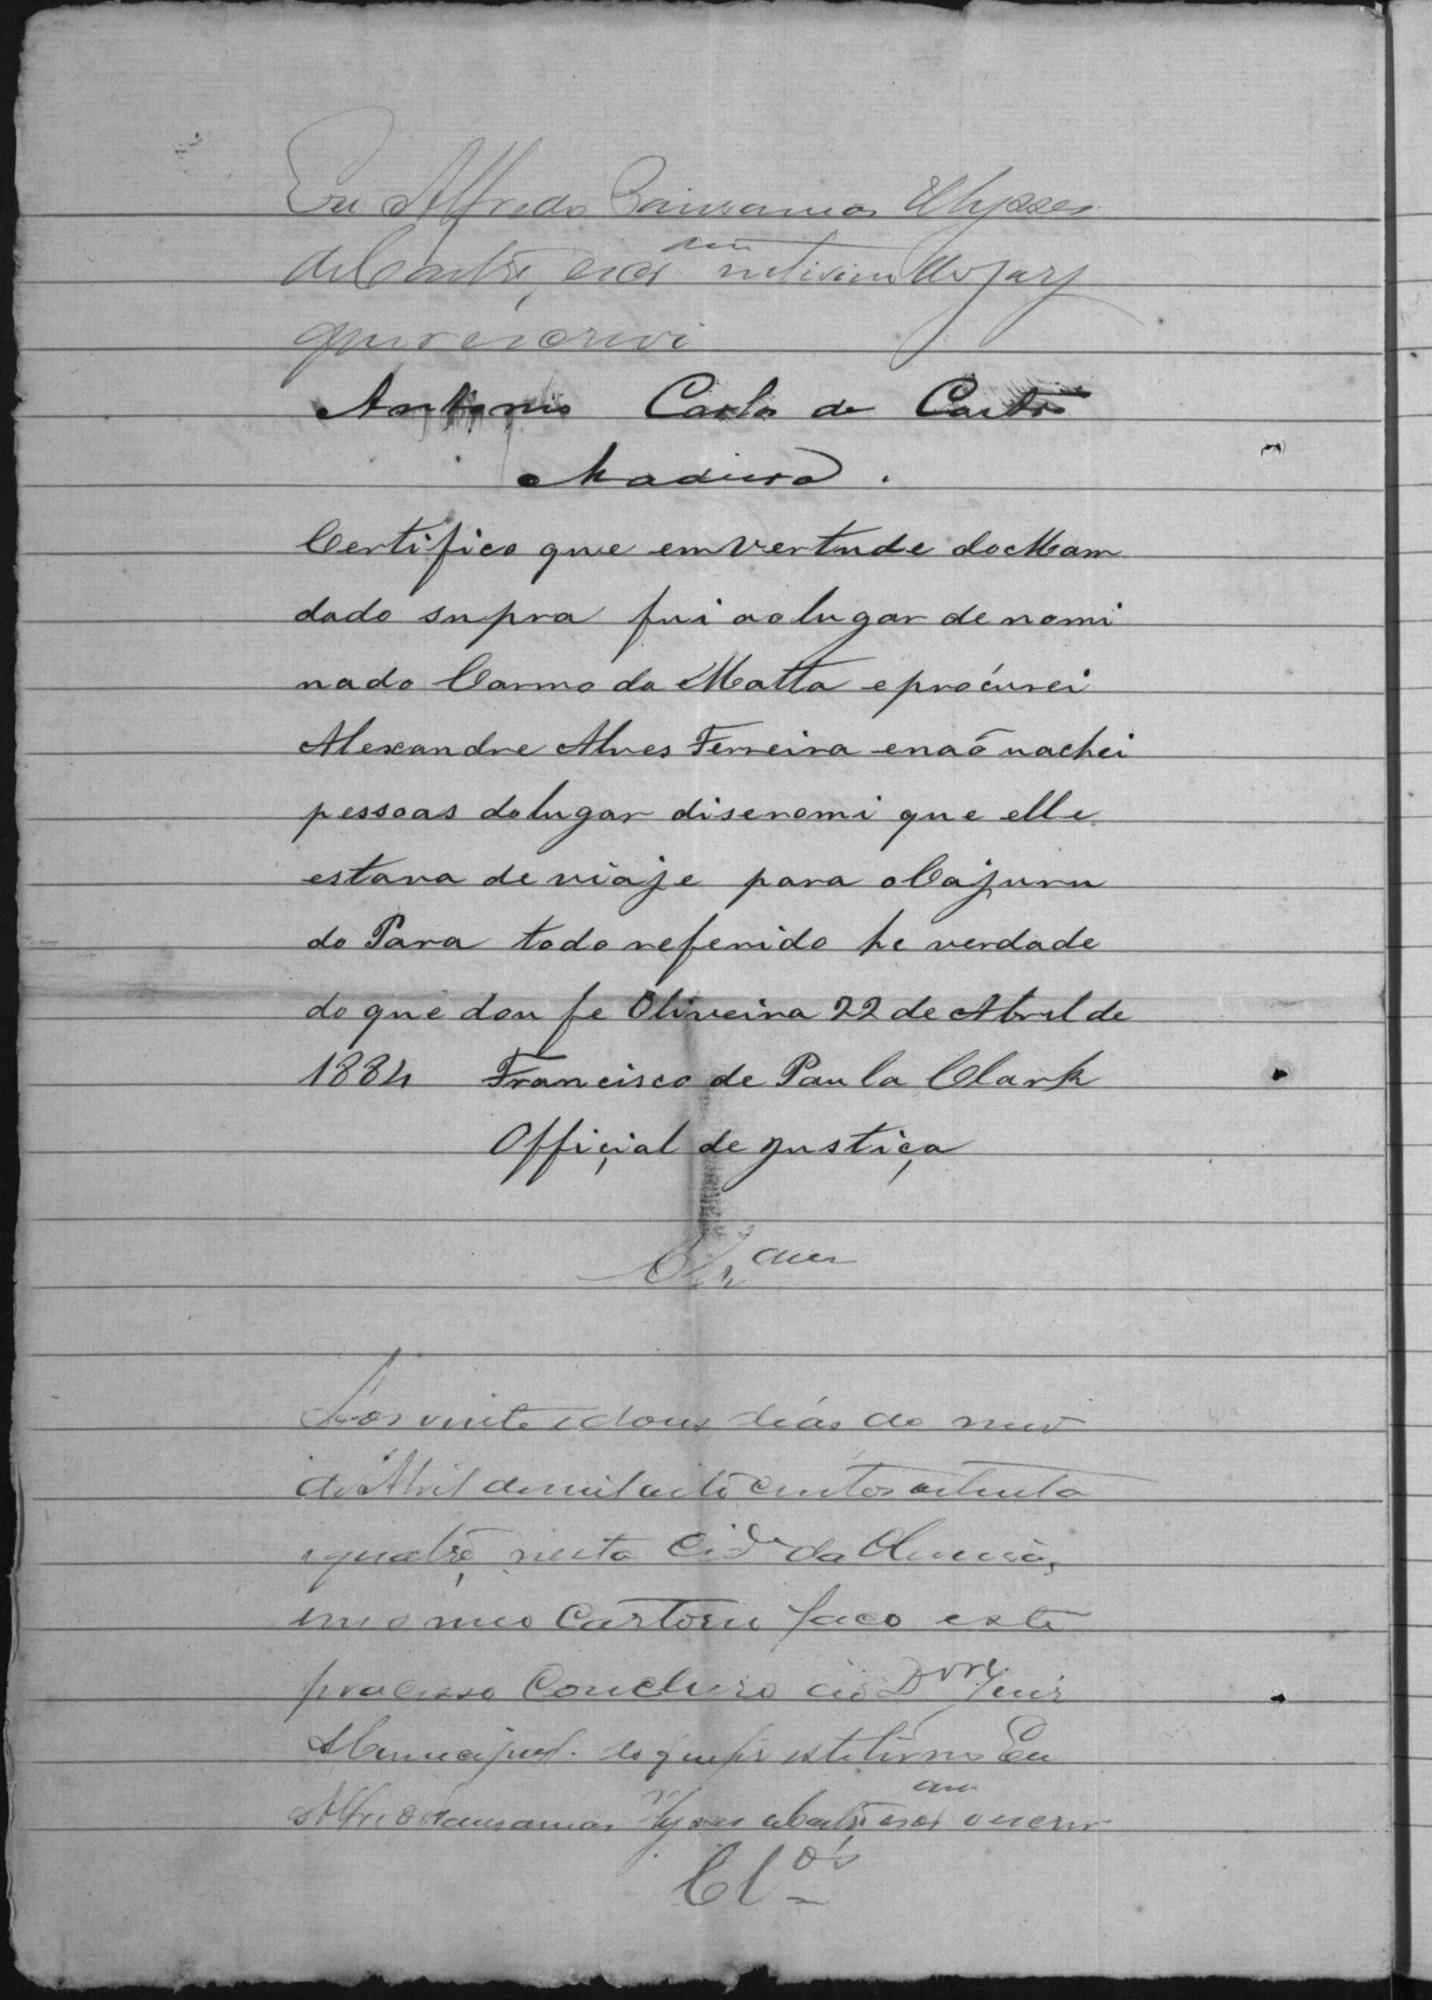 Eu Alfredo Ulysses
de Castro, escr
que escrevi
Antonio Carlos de Castro
Madura.
Certifico que em vertude do Mam
dado supra fui ao lugar denomi
nado Carmo da Matta e procurei
Alexandre Alves Ferreira e naõ uachei
pessoas do lugar diseromi que elle
estava de viaje para o Cajuru
do Para todo referido he verdade
do que dou fe Oliveira 22 de Abril de
1884 Francisco de Paula Clark
Offiçial de Justiça
Clam
Aos vinte e dous dias do mez
de Abril de mil oito centos oitenta
e quatro, nesta Cid.e da Oliveira,
em o meo Cartorio faco este
processo Concluzo ao Dor. Juiz
Municipal. do que fiz este termo Eu
Alfredo Ulysses de Castro, escr o escrevi
Clos